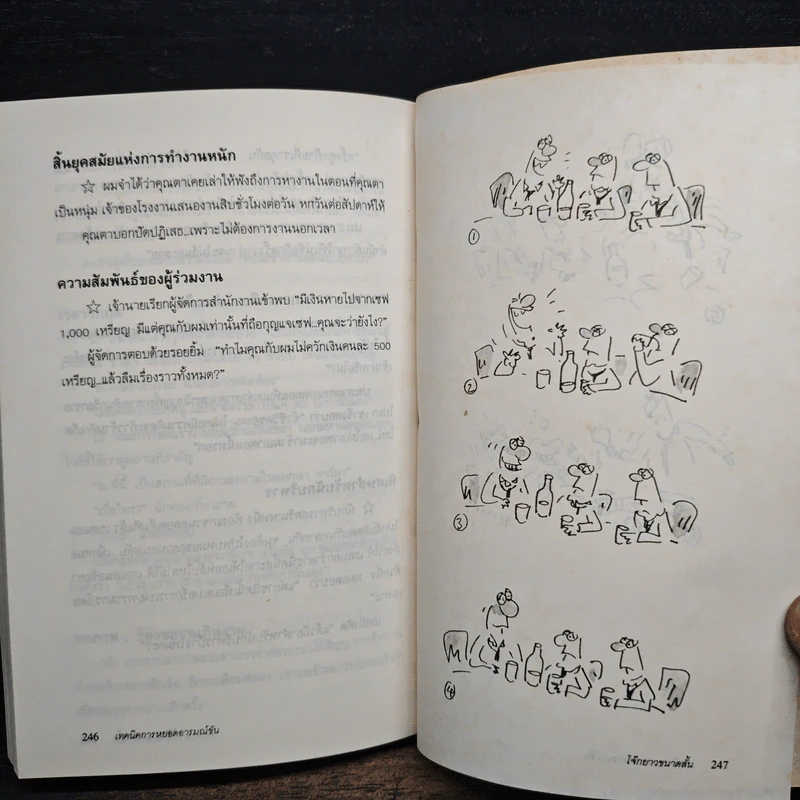 สิ้นยุคสมัยแห่งการทำงานหนัก
☆ ผมจำได้ว่าคุณตาเคยเล่าให้ฟังถึงการหางานในตอนที่คุณตา
เป็นหนุ่ม เจ้าของโรงงานเสนองานสิบชั่วโมงต่อวัน หกวันต่อสัปดาห์ให้
คุณตาบอกปัดปฏิเสธ...เพราะไม่ต้องการงานนอกเวลา
ความสัมพันธ์ของผู้ร่วมงาน
☆ เจ้านายเรียกผู้จัดการสำนักงานเข้าพบ "มีเงินหายไปจากเซฟ
1,000 เหรียญ มีแต่คุณกับผมเท่านั้นที่ถือกุญแจเซฟ...คุณจะว่ายังไง?"
ผู้จัดการตอบด้วยรอยยิ้ม "ทำไมคุณกับผมไม่ควักเงินคนละ 500
เหรียญ...แล้วลืมเรื่องราวทั้งหมด?"
246 เทคนิคการหยอดอารมณ์ขัน
1
2
3
4
โจ๊กยาวขนาดสั้น 247